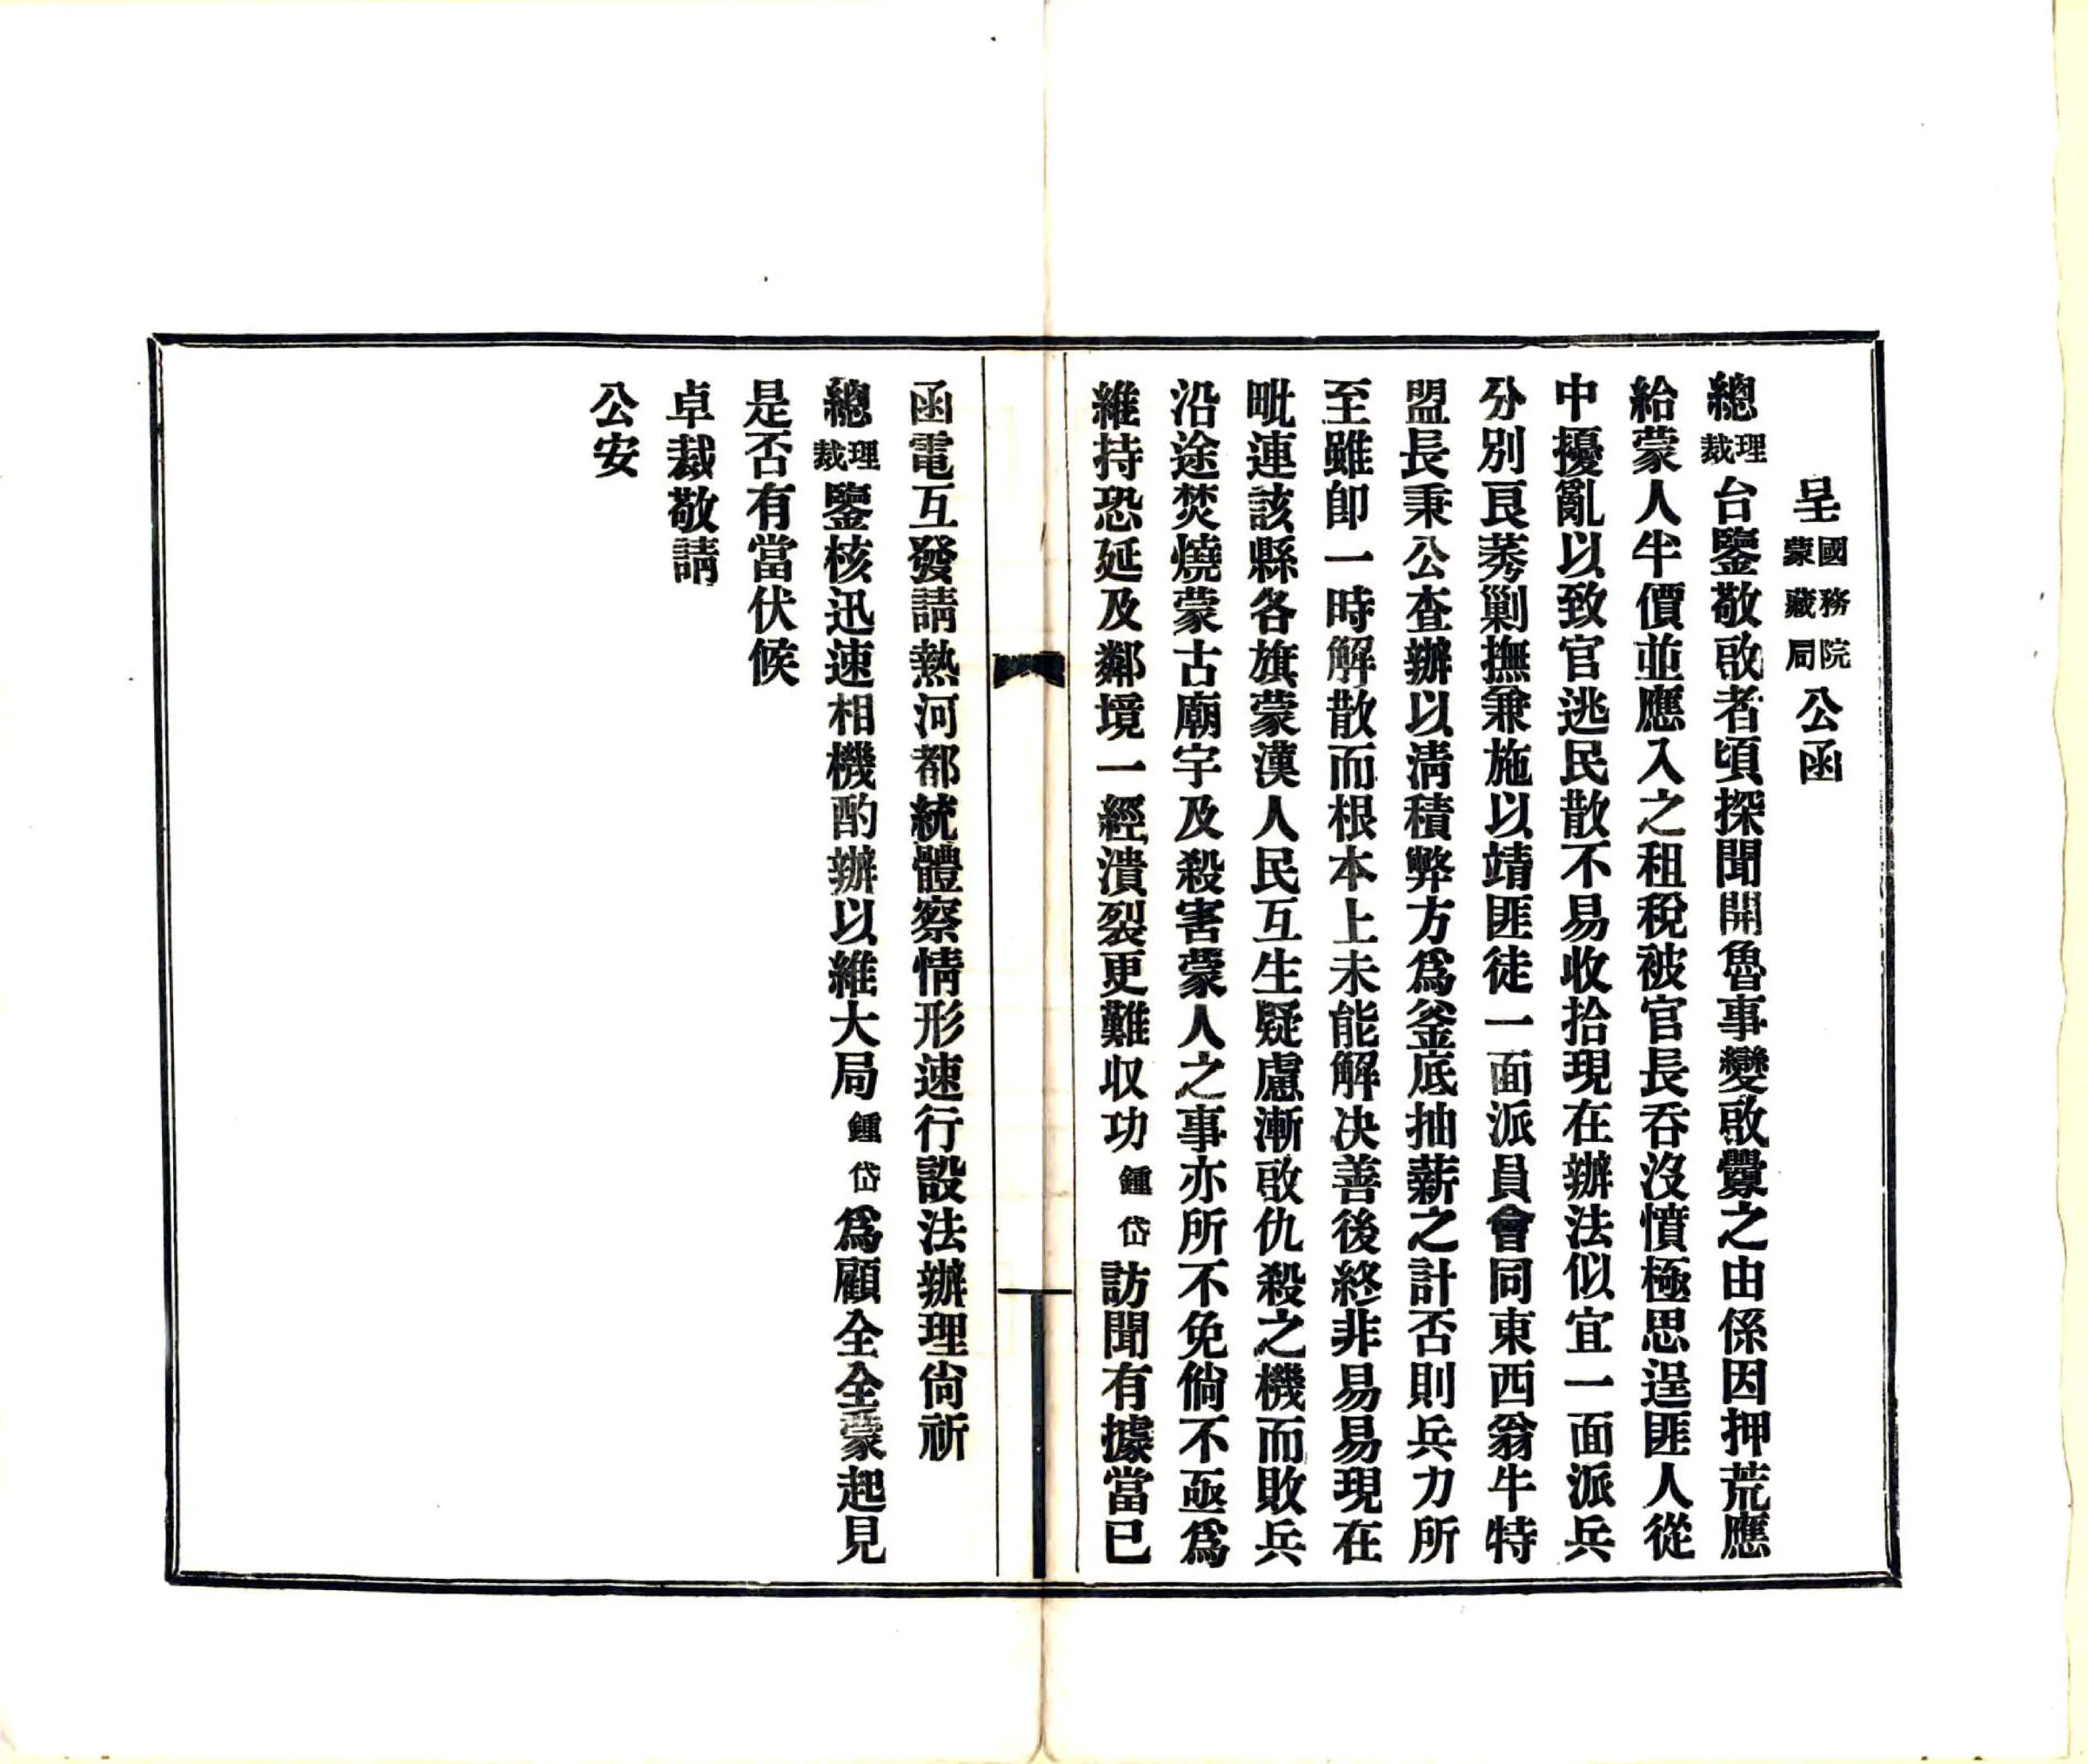 呈國務院蒙藏局公函
總理裁台鑒敬啟者頃探聞開魯事變啟釁之由係因押荒應
給蒙人半價並應入之租稅被官長吞沒憤極思逞匪人從
中擾亂以致官逃民散不易收拾現在辦法似宜一面派兵
分別良莠剿撫兼施以靖匪徒一面派員會同東西翁牛特
盟長秉公查辦以清積弊方為釜底抽薪之計否則兵力所
至雖卽一時解散而根本上未能解决善後終非易易現在
毗連該縣各旗蒙漢人民互生疑慮漸啟仇殺之機而敗兵
沿途焚燒蒙古廟宇及殺害蒙人之事亦所不免倘不亟為
維持恐延及鄰境一經潰裂更難収功鍾岱訪聞有據當已
函電互發請熱河都統體察情形速行設法辦理尙祈
總理裁鑒核迅速相機酌辦以維大局鍾岱為顧全全蒙起見
是否有當伏候
卓裁敬請
公安